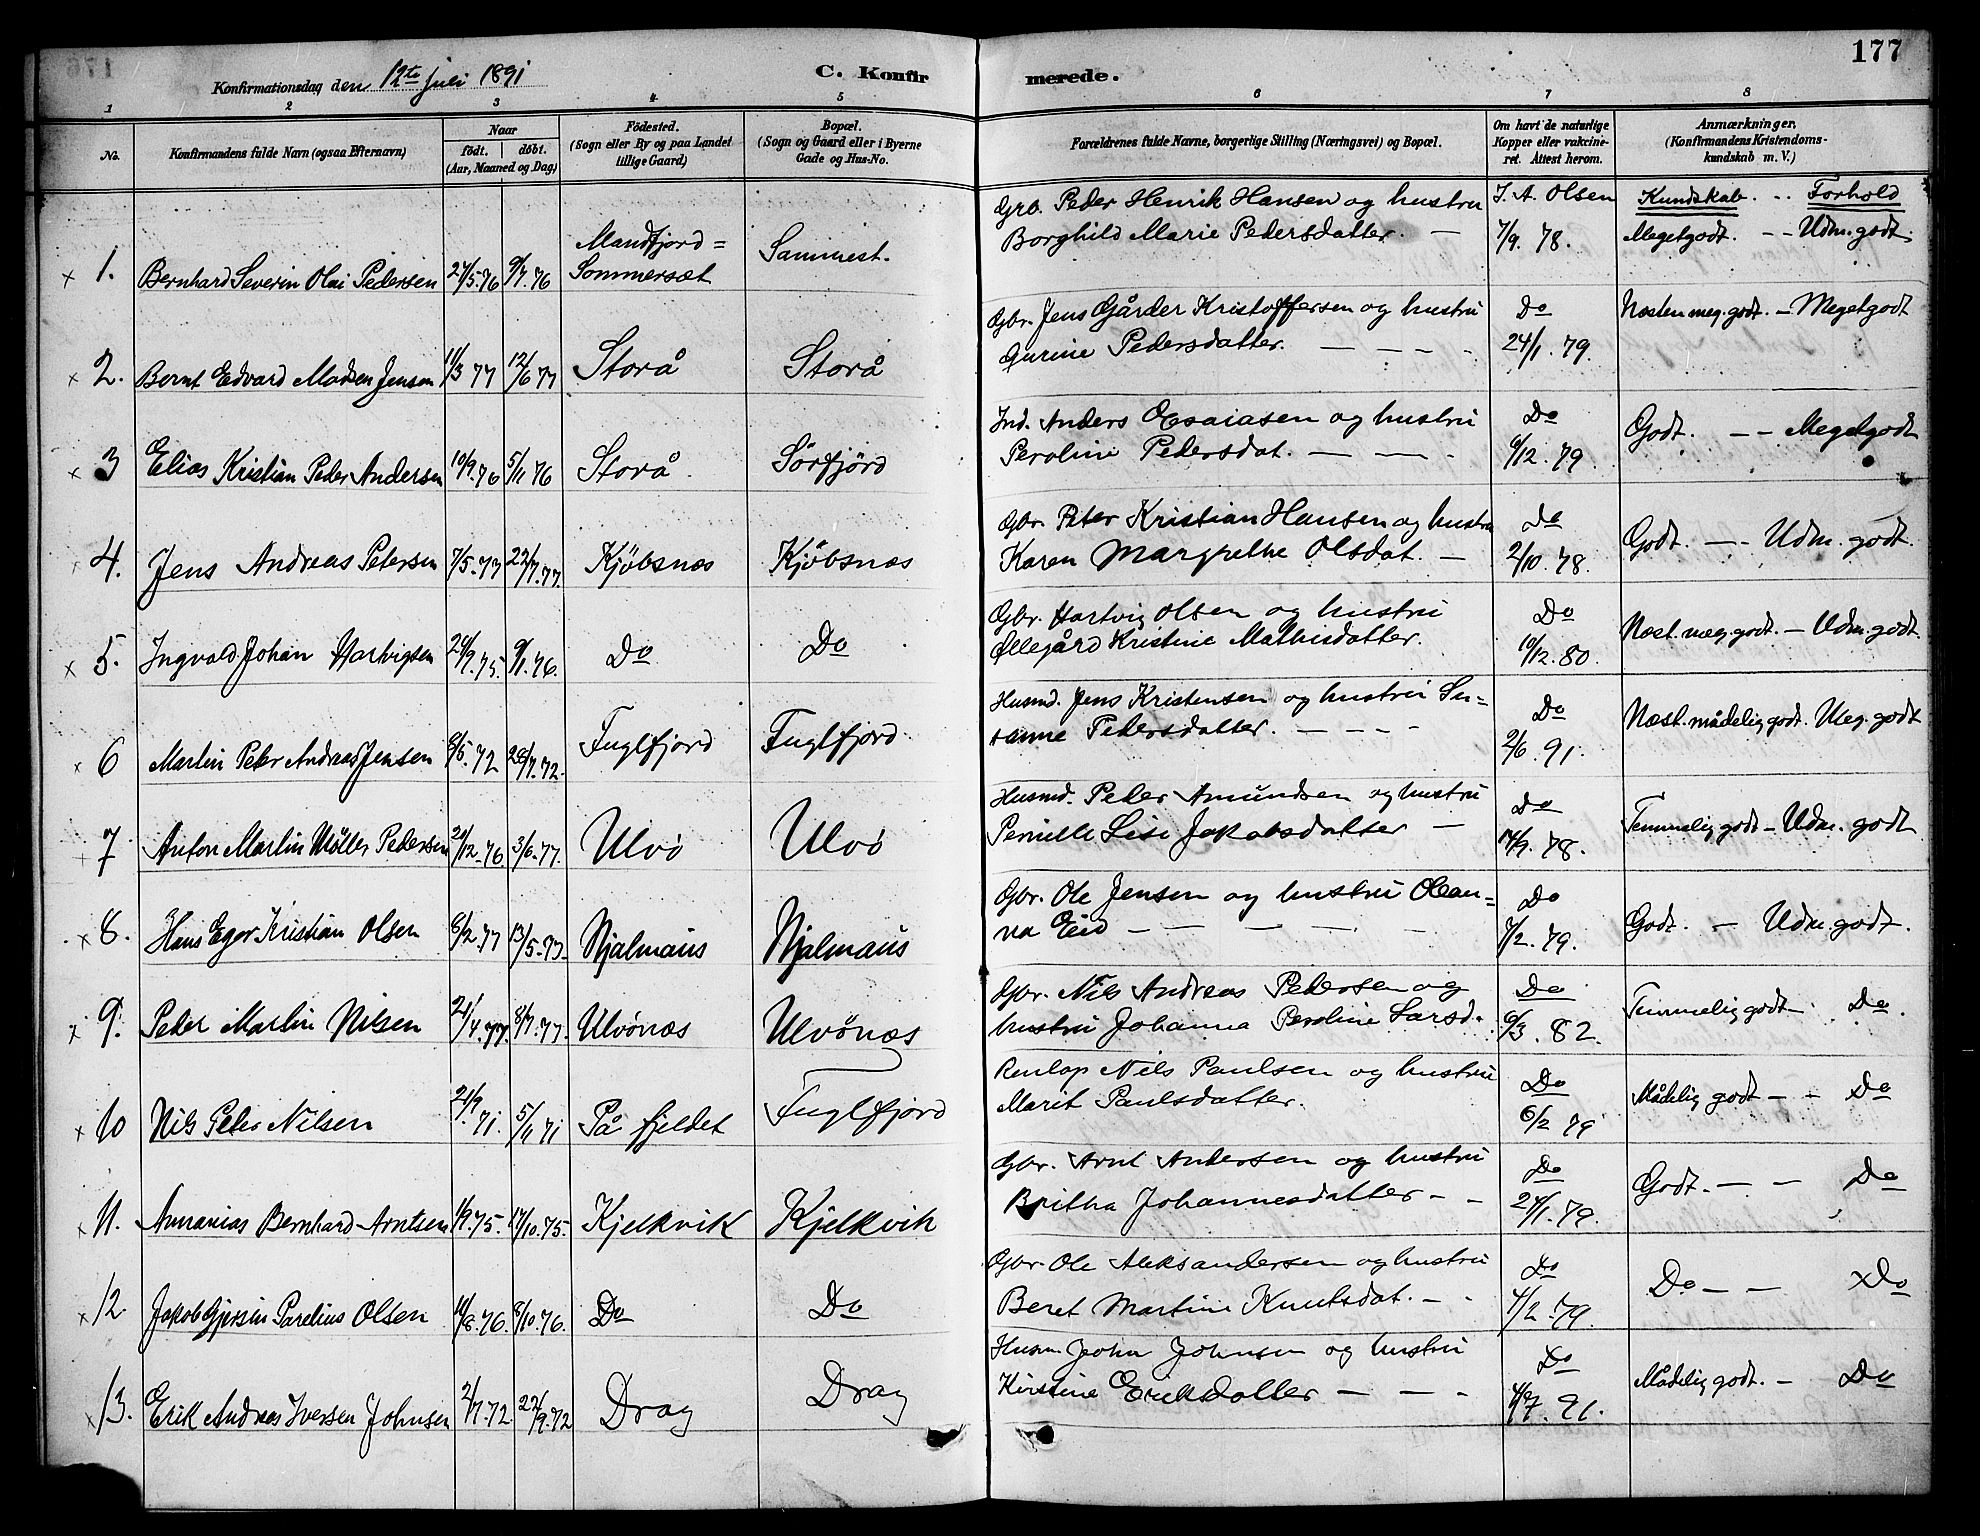 177
Konfirmationsdag den 12te Juli 1891
C. Konfirmerede.
1 2 3 4 5 6 7 8
No.
Konfirmandens fulde Navn (ogsaa Efternavn)
Naar
født. døbt.
(Aar, Maaned og Dag)
Födested.
(Sogn eller By og paa Landet tillige Gaard)
Bopæl.
(Sogn og Gaard eller i Byerne Gade og Hus-No.
Forældrenes fulde Navne, borgerlige Stilling (Næringsvei) og Bopæl.
Om havt de naturlige Kopper eller vakcineret. Attest herom.
Anmærkninger.
(Konfirmandens Kristendomskundskab m. V.)
Kundskab. .. Forhold
x 1. Bernhard Severin Olai Pedersen 27/5.76 9/7.76 Mandfjord= Sommersæt Sammest.
Gbr. Peder Henrik Hansen og hustru Borghild Marie Pedersdatter. — J. A. Olsen 7/9. 78. Megetgodt. — Udm. godt.
x 2. Bernt Edvard Madsen Jensen 11/3 77 12/6 77 Storå Storå
Gbr. Jens Gårder Kristoffersen og hustru Gurine Pedersdatter. — Do 24/1. 79. Næsten meg. godt. — Megetgodt
x 3 Elias Kristian Peder Andersen 10/9.76 5/11 76 Storå Sørfjörd
Ind. Anders Esaiasen og hustru Peroline Pedersdat. — Do 6/12. 79. Godt. — Megetgodt
4. Jens Andreas Petersen 7/5.77 22/7.77. Kjöbsnæs Kjöbsnæs
Gbr. Peter Kristian Hansen og hustru Karen Margrethe Olsdat. — Do 2/10. 78. Godt. — Udm. godt.
x 5. Ingvald Johan Hartvigsen 24/9.75. 9/1.76. Do Do
Gbr. Hartvig Olsen og hustru Ellegård Kristine Mathisdatter. Do 10/12. 80. Næst. meg. godt. — Udm. godt.
x 6 Martin Peter Andreas Jensen 8/5.72 28/7.72. Fuglfjord Fuglfjord
Husmd. Jens Kristensen og hustru Susanne Pedersdatter. — Do 2/6 91. Næst. mådelig godt. Meg. godt
7. Anton Martin Møller Pedersen 20/12.76 3/6.77. Ulvö Ulvö
Husmd. Peder Amundsen og hustru Pernille Lise Jakobsdatter — Do 14/9. 78. Temmelig godt — Udm. godt
x 8. Hans Eger Kristian Olsen 8/2.77 13/5.77. Njalmaus Njalmaus
Gbr. Ole Jensen og hustru Oleanna Eid — Do 7/2. 79. Godt. — Udm. godt.
x 9. Peder Martin Nilsen 21/4.77. 8/7.77. Ulvönæs Ulvönæs
Gbr. Nils Andreas Pedersen og hustru Johanna Peroline Larsd. Do 6/3. 82. Temmelig godt — Do.
x 10 Nils Peter Nilsen 21/9.71. 5/11 71 På fjeldet Fuglfjord
Renlap Nils Paulsen og hustru Marit Paulsdatter. Do 6/2 79 Mådelig godt — Do
x 11. Annanias Bernhard Arntsen 1/9.75. 17/10.75. Kjelkvik Kjelkvik
Gbr. Arnt Andersen og hustru Britha Johannesdatter — Do 24/1. 79. Godt. — Do
x 12 Jakob Gjersin Parelius Olsen 14/8.76. 8/10.76. Do Do
Gbr. Ole Aleksandersen og hustru Beret Martine Knutsdat. — Do 7/2. 79. Do — x Do
x 13. Erik Andreas Iversen Johnsen 2/7.72. 22/9.72 Drag Drag
Husm. John Johnsen og hustru Kirstine Eriksdatter — Do 4/7. 91. Mådelig godt. — Do